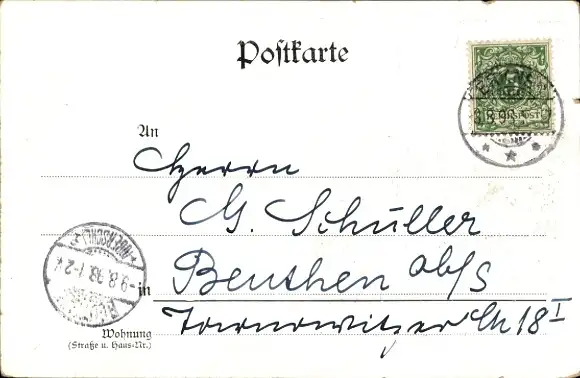 Postkarte
An
Herrn
G. Schüller
Beuthen ob/S
in
Tarnowitzer Ch 18 I
Wohnung
(Straße u. Haus-Nr.)
9.8.98.1-2